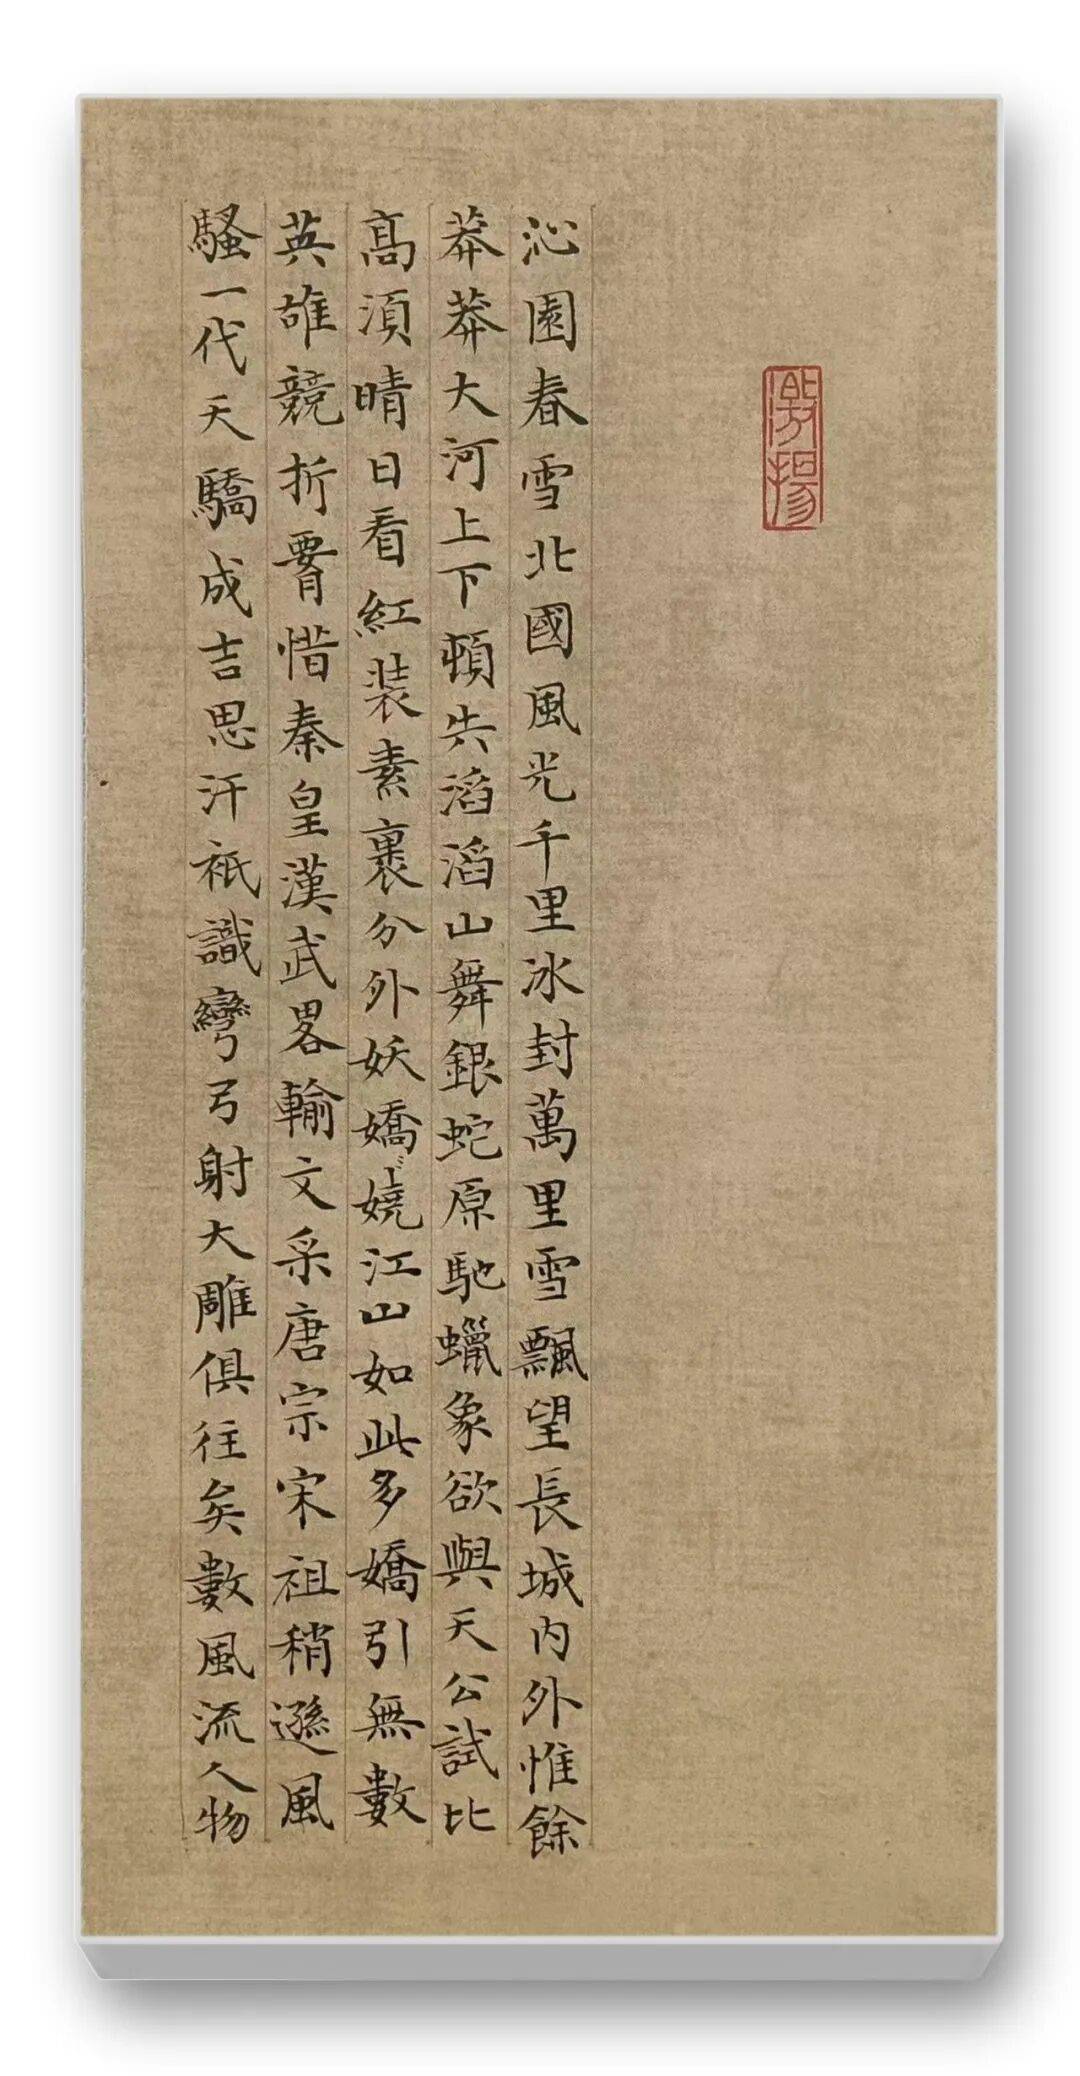 激揚
沁園春雪北國風光千里冰封萬里雪飄望長城内外惟餘
莽莽大河上下頓失滔滔山舞銀蛇原馳蠟象欲與天公試比
高須晴日看紅裝素裹分外妖嬌嬈江山如此多嬌引無數
英雄競折腰惜秦皇漢武畧輸文采唐宗宋祖稍遜風
騷一代天驕成吉思汗祇識彎弓射大雕俱往矣數風流人物